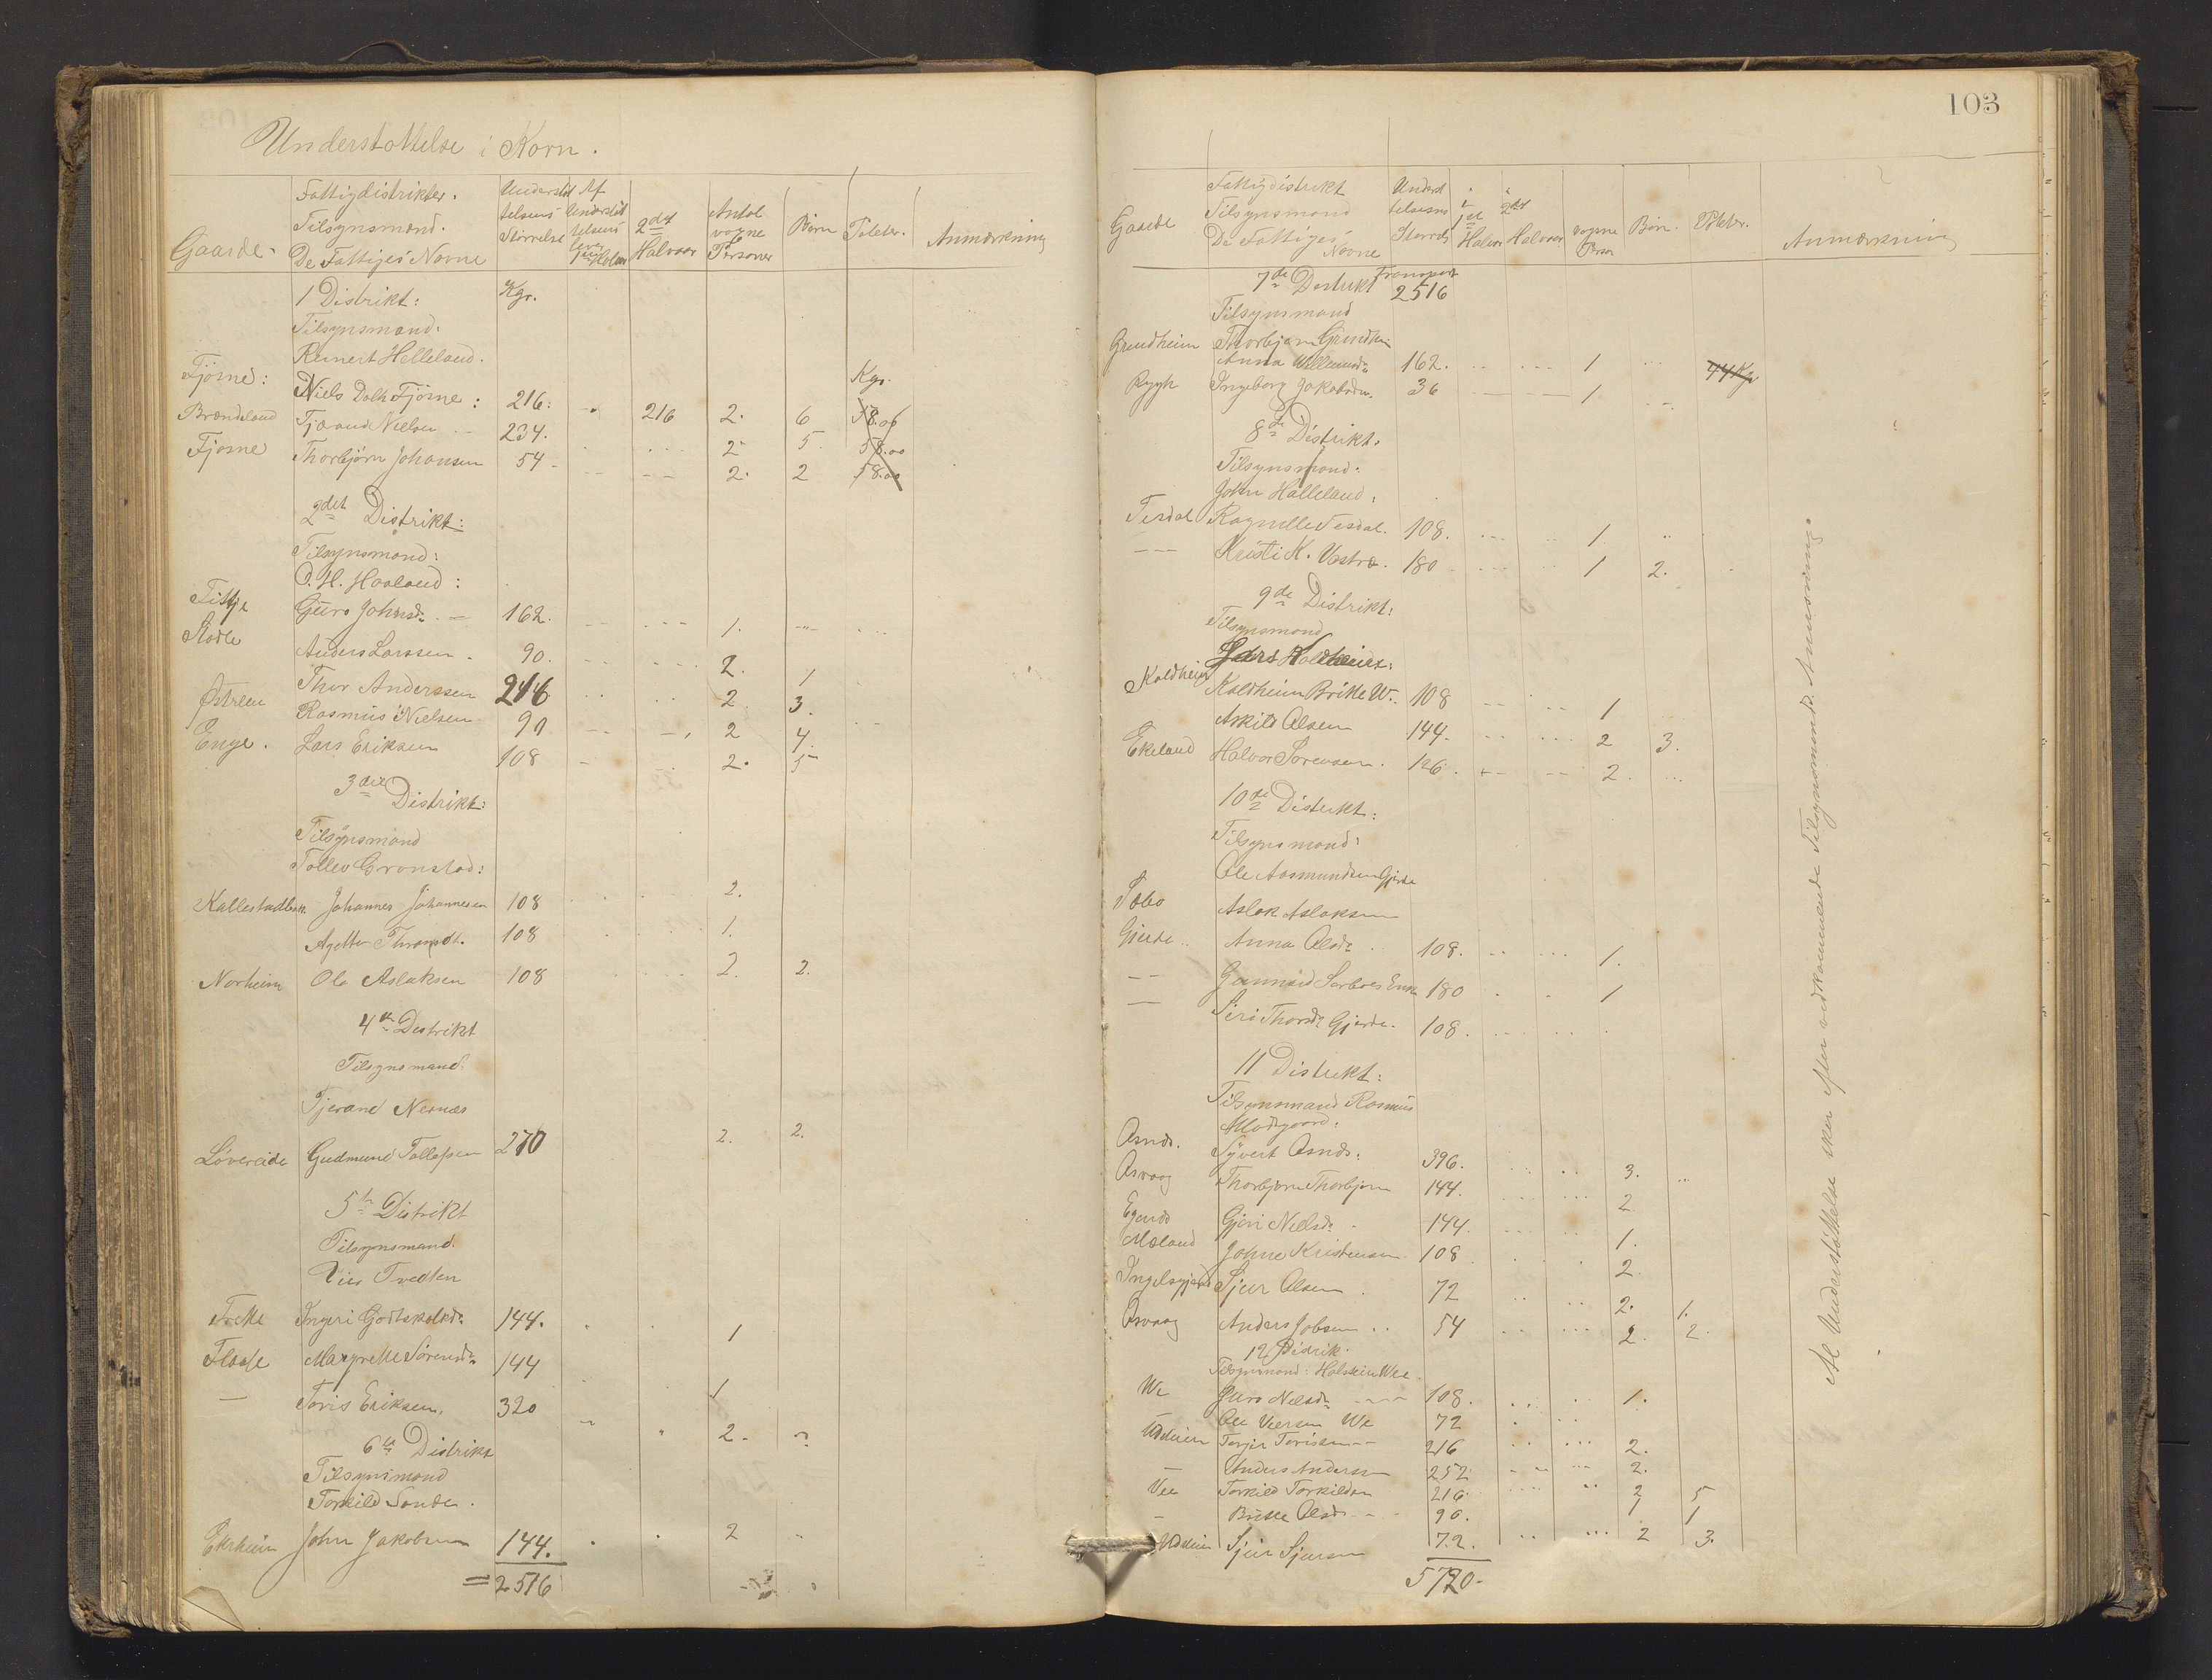 Understøttelse i Korn.
Gaarde
Fattigdistrikter.
Tilsynsmænd.
De Fattiges Navne
Understøttelsens Størrelse
Af Understøttelsens
2det Halvaar
Antal voxne Personer
Børn
Poteter.
Anmærkning
1 Distrikt: Kgr.
Tilsynsmand:
Reinert Helleland.
Kgr.
Fjøsne: Niels Dalh Fjøsne: 216: 216 2. 6 58.00
Brændeland Tjærand Nielsen 234. 2 5 58.00
Fjøsne Thorbjørn Johansen 54 2. 2 58.00
2det Distrikt:
Tilsynsmand:
O. H. Haaland:
Guro Johnsd. 162. 1.
Stødle Anders Larssen. 90. 2. 1
Thor Andersen 216 2. 3.
Østreim Rasmus Nielsen 90 2 4.
Enge. Lars Eriksen 108 2. 5
3die Distrikt:
Tilsynsmand
Tollev Grønstad:
Johannes Johannesen 108 2.
108 1.
Norheim Ole Aslaksen 108 2. 2.
4de Distrikt
Tilsynsmand.
Tjerand Nernæs
Løvereide Gudmund Tollefsen 270 2. 2.
5te Distrikt
Tilsynsmand.
Vier Tvedten
Ingeri Godtskalksd. 144. 1
Margrethe Sørensd. 144 1
— Toris Eriksen, 320 2.
6te Distrikt
Tilsynsmand
Torkild Sande.
Ekrheim John Jakobsen 144. 2
= 2516
103
Gaarde
Fattigdistrikt
Tilsynsmænd
De Fattiges Navne
Underst telsens Størrels
i 1ste Halva
i 2det Halvaar
voxne Person
Børn.
Poteter.
Anmærkning
7de Distrikt Transport 2516
Tilsynsmand
Grindheim Thorbjørn Grindhei
Anna Villumsd. 162. 1 44 Kgr
Rygh Ingeborg Jakobsdr. 36 1
8de Distrikt.
Tilsynsmand:
John Halleland.
Tesdal Ragnille Tesdal. 108. 1.
Kristi K. Vastrø. 180 1 2.
9de Distrikt:
Tilsynsmand
Lars Koldheim:
Koldheim Koldheim Britte W. 108 1
Askild Olsen 144. 2 3.
Ekeland Halvor Sørensen. 126. 2.
10de Distrikt:
Tilsynsmand:
Ole Aasmundsen Gjerde
Sæbø Aslak Aslaksen
Gjerde Anna Olsd. 108. 1.
180 1
Siri Thorsd. Gjerde. 108.
11 Distrikt:
Tilsynsmand Rasmus
Milodgaard:
Sjvert 396. 3.
Osvaag Thorbjørn Thorbjørn 144. 2
Gjøri Nielsd. 144. 1.
Mæland Johne Kristensen 108 2
Sjur Olsen 72 2. 1.
Osvaag Anders Jobsen 54 2. 2.
12 Distrik.
Tilsynsmand: Halstein Wee
We Guro Nielsd. 108. 1.
Ole Viersen We 72
Uddeim Torjer Torisen 216 2.
Anders Andersen 252 2.
Vee Torkild Torkildsen 216 2 5
Britte Olsd. 90. 1 1
Uddeim Sjur Sjursen 72. 2 3.
5720.
Al Understøttelse sker efter vedkommende Tilsynsmands Anvisning